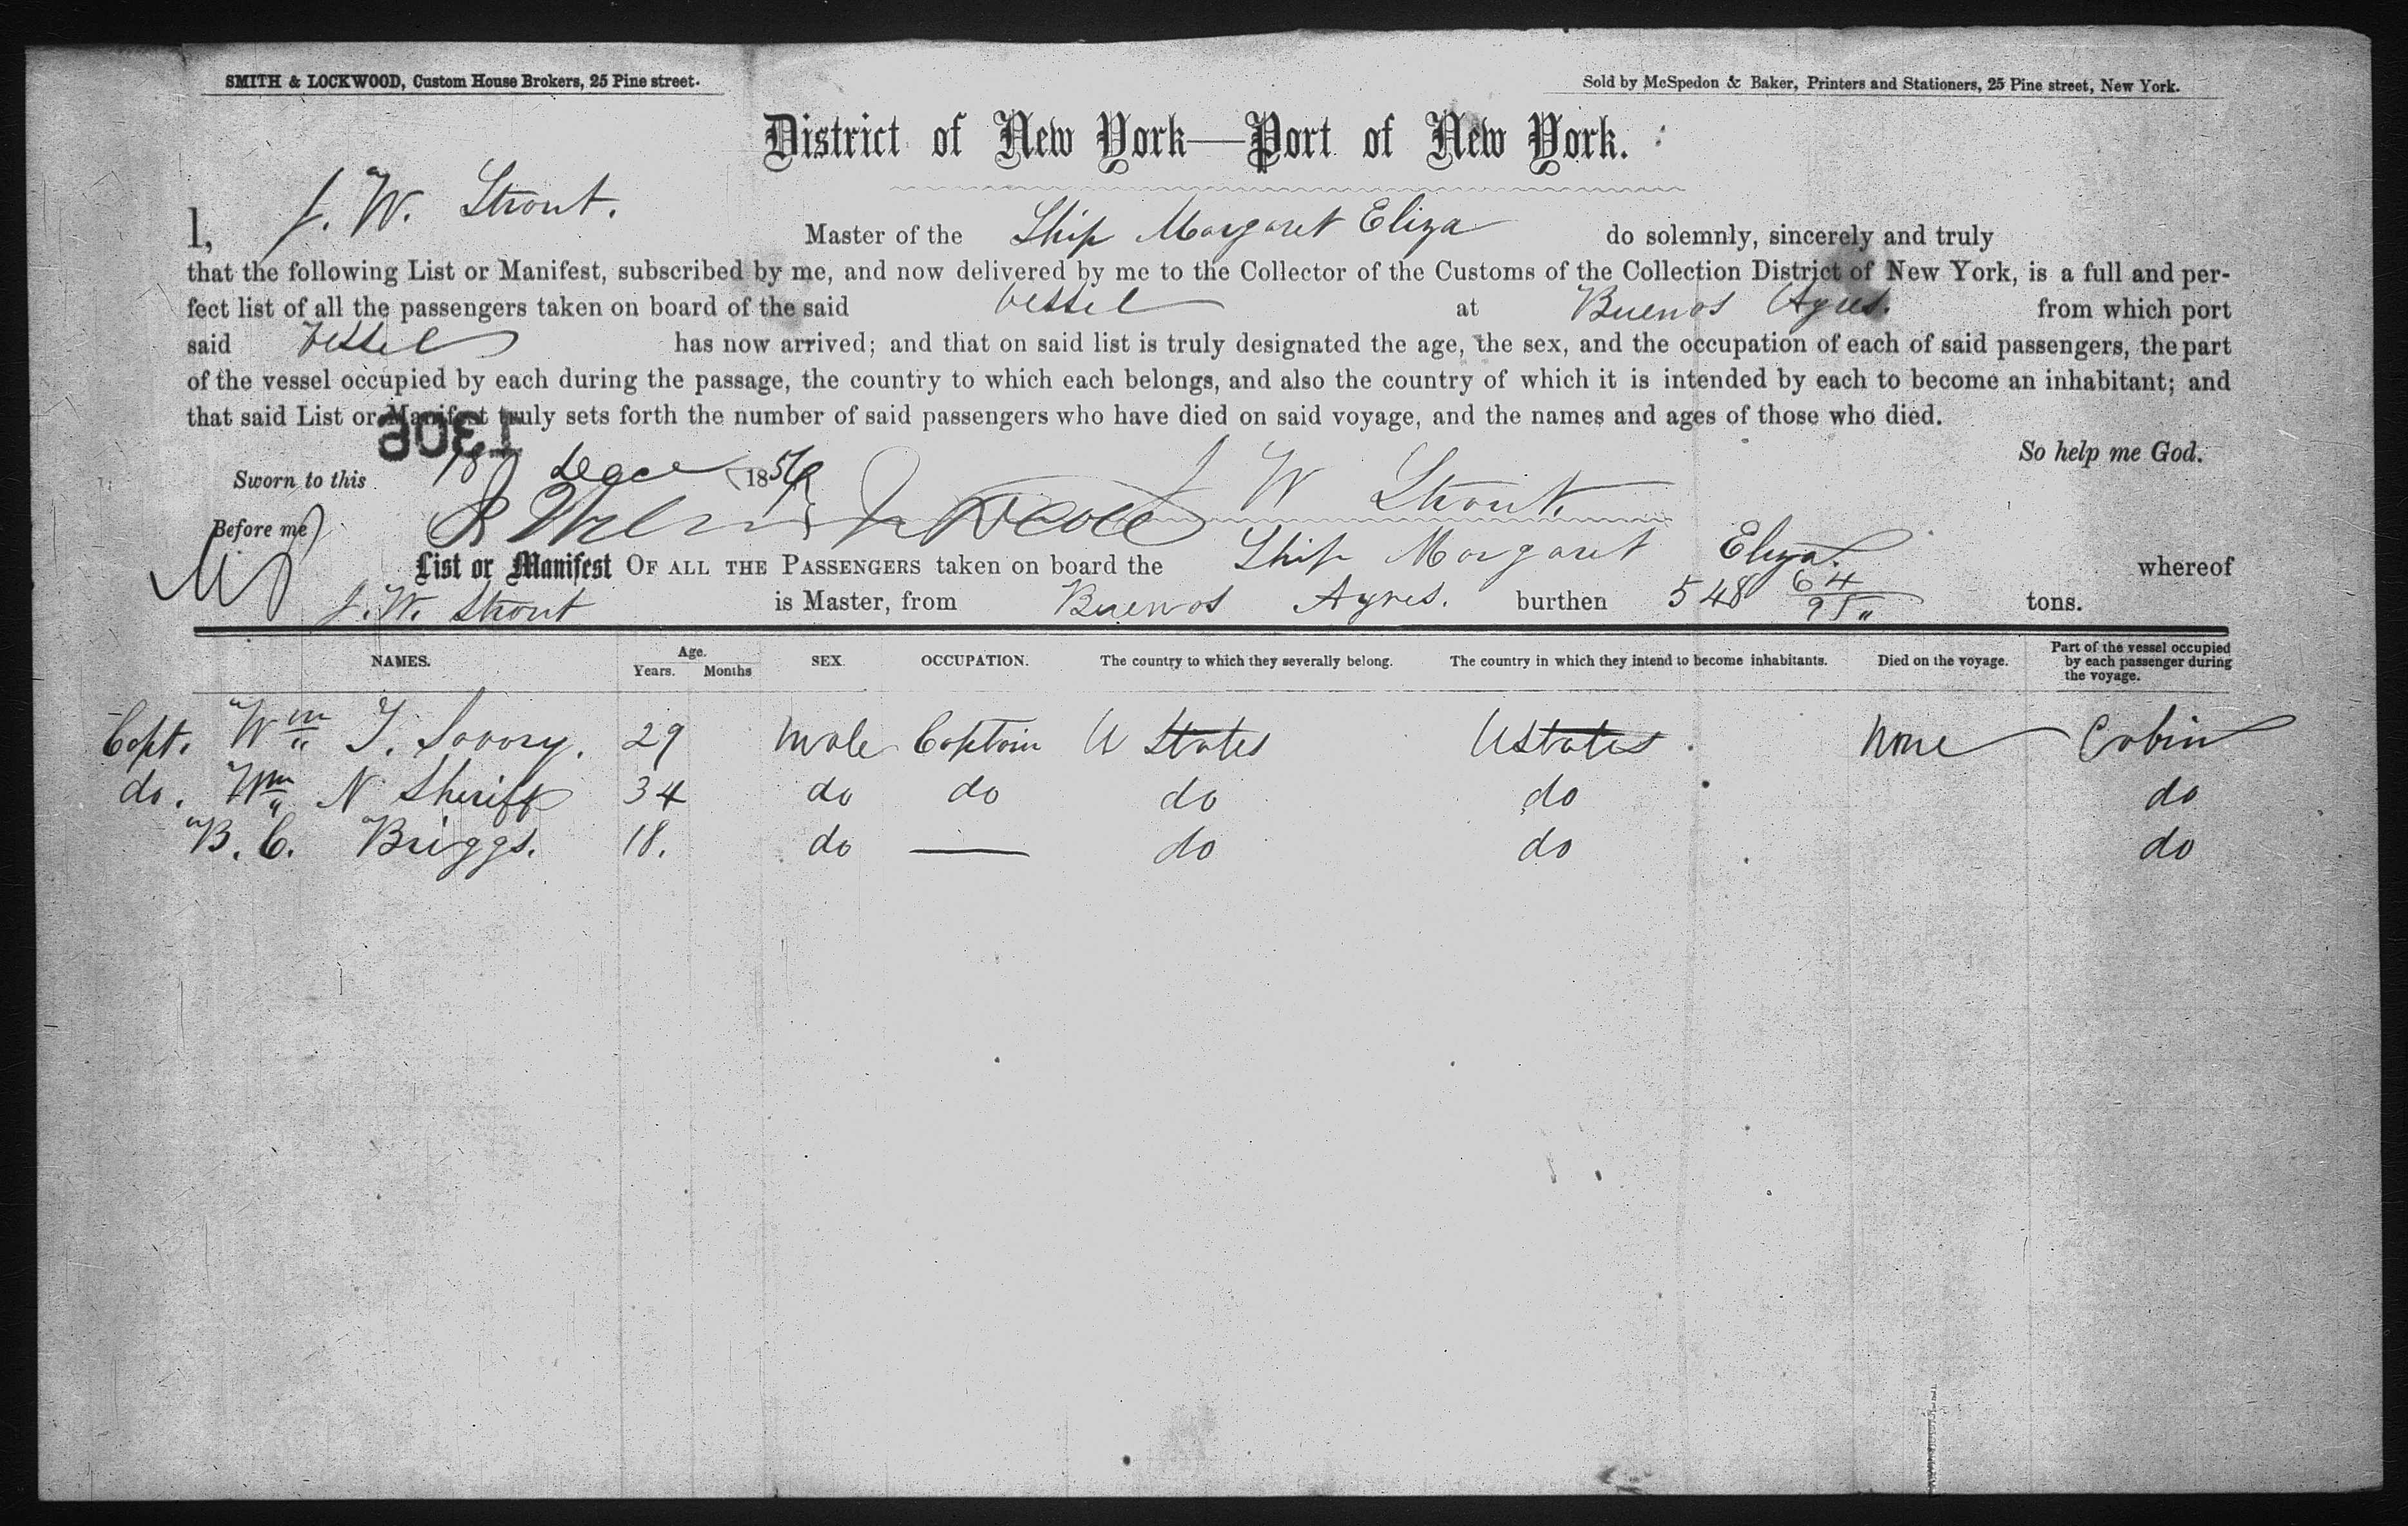 SMITH & LOCKWOOD, Custom House Brokers, 25 Pine street.
Sold by McSpedon & Baker, Printers and Stationers, 25 Pine street, New York.
District of New York—Port of New York.
I, J. W. Strout. Master of the Ship Margaret Eliza do solemnly, sincerely and truly
that the following List or Manifest, subscribed by me, and now delivered by me to the Collector of the Customs of the Collection District of New York, is a full and per-
fect list of all the passengers taken on board of the said Vessel at Buenos Ayres. from which port
said Vessel has now arrived; and that on said list is truly designated the age, the sex, and the occupation of each of said passengers, the part
of the vessel occupied by each during the passage, the country to which each belongs, and also the country of which it is intended by each to become an inhabitant; and
that said List or Manifest truly sets forth the number of said passengers who have died on said voyage, and the names and ages of those who died.
1306
So help me God.
Sworn to this 18 Dece 1856
J W Strout.
Before me
List or Manifest OF ALL THE PASSENGERS taken on board the Ship Margaret Eliza. whereof
J. W. Strout is Master, from Buenos Ayres. burthen 548 64/95 tons.
NAMES. Age. Years. Months SEX. OCCUPATION. The country to which they severally belong. The country in which they intend to become inhabitants. Died on the voyage. Part of the vessel occupied by each passenger during the voyage.
Capt. Wm T. Savory. 29 Male Captain U States U States. None Cabin
do. Wm N Sheriff 34 do do do do do
B. C. Briggs. 18. do — do do do